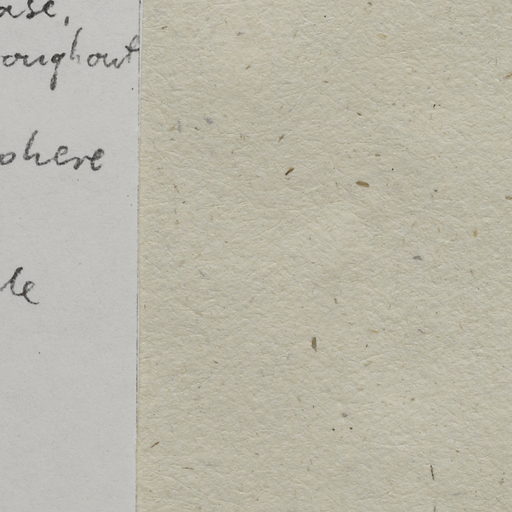 ase,
oughout
ohere
le